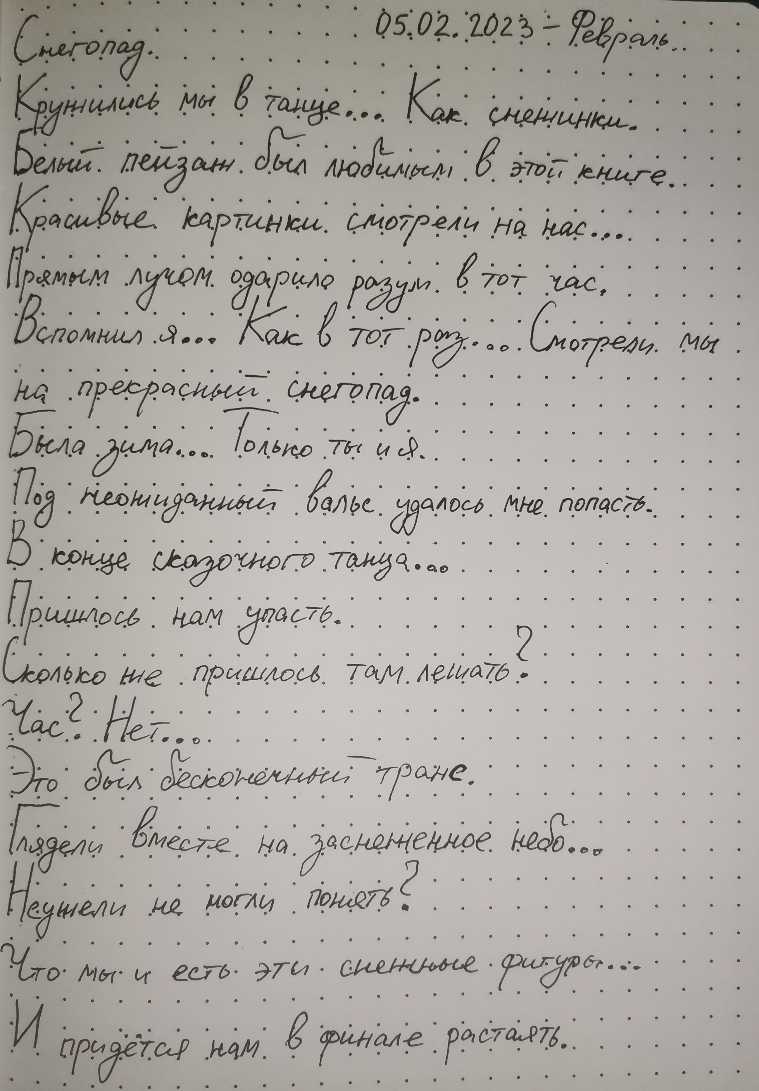 05.02.2023 – Февраль.
Снегопад.
Кружились мы в танце... Как снежинки.
Белый пейзаж был любимым в этой книге.
Красивые картинки смотрели на нас...
Прямым лучом одарило разум в тот час.
Вспомнил я... Как в тот раз... Смотрели мы
на прекрасный снегопад.
Была зима... Только ты и я.
Под неожиданный вальс удалось мне попасть.
В конце сказочного танца...
Пришлось нам упасть.
Сколько же пришлось там лежать?
Час? Нет...
Это был бесконечный транс.
Глядели вместе на заснеженное небо...
Неужели не могли понять?
Что мы и есть эти снежные фигуры...
И придётся нам в финале растаять.